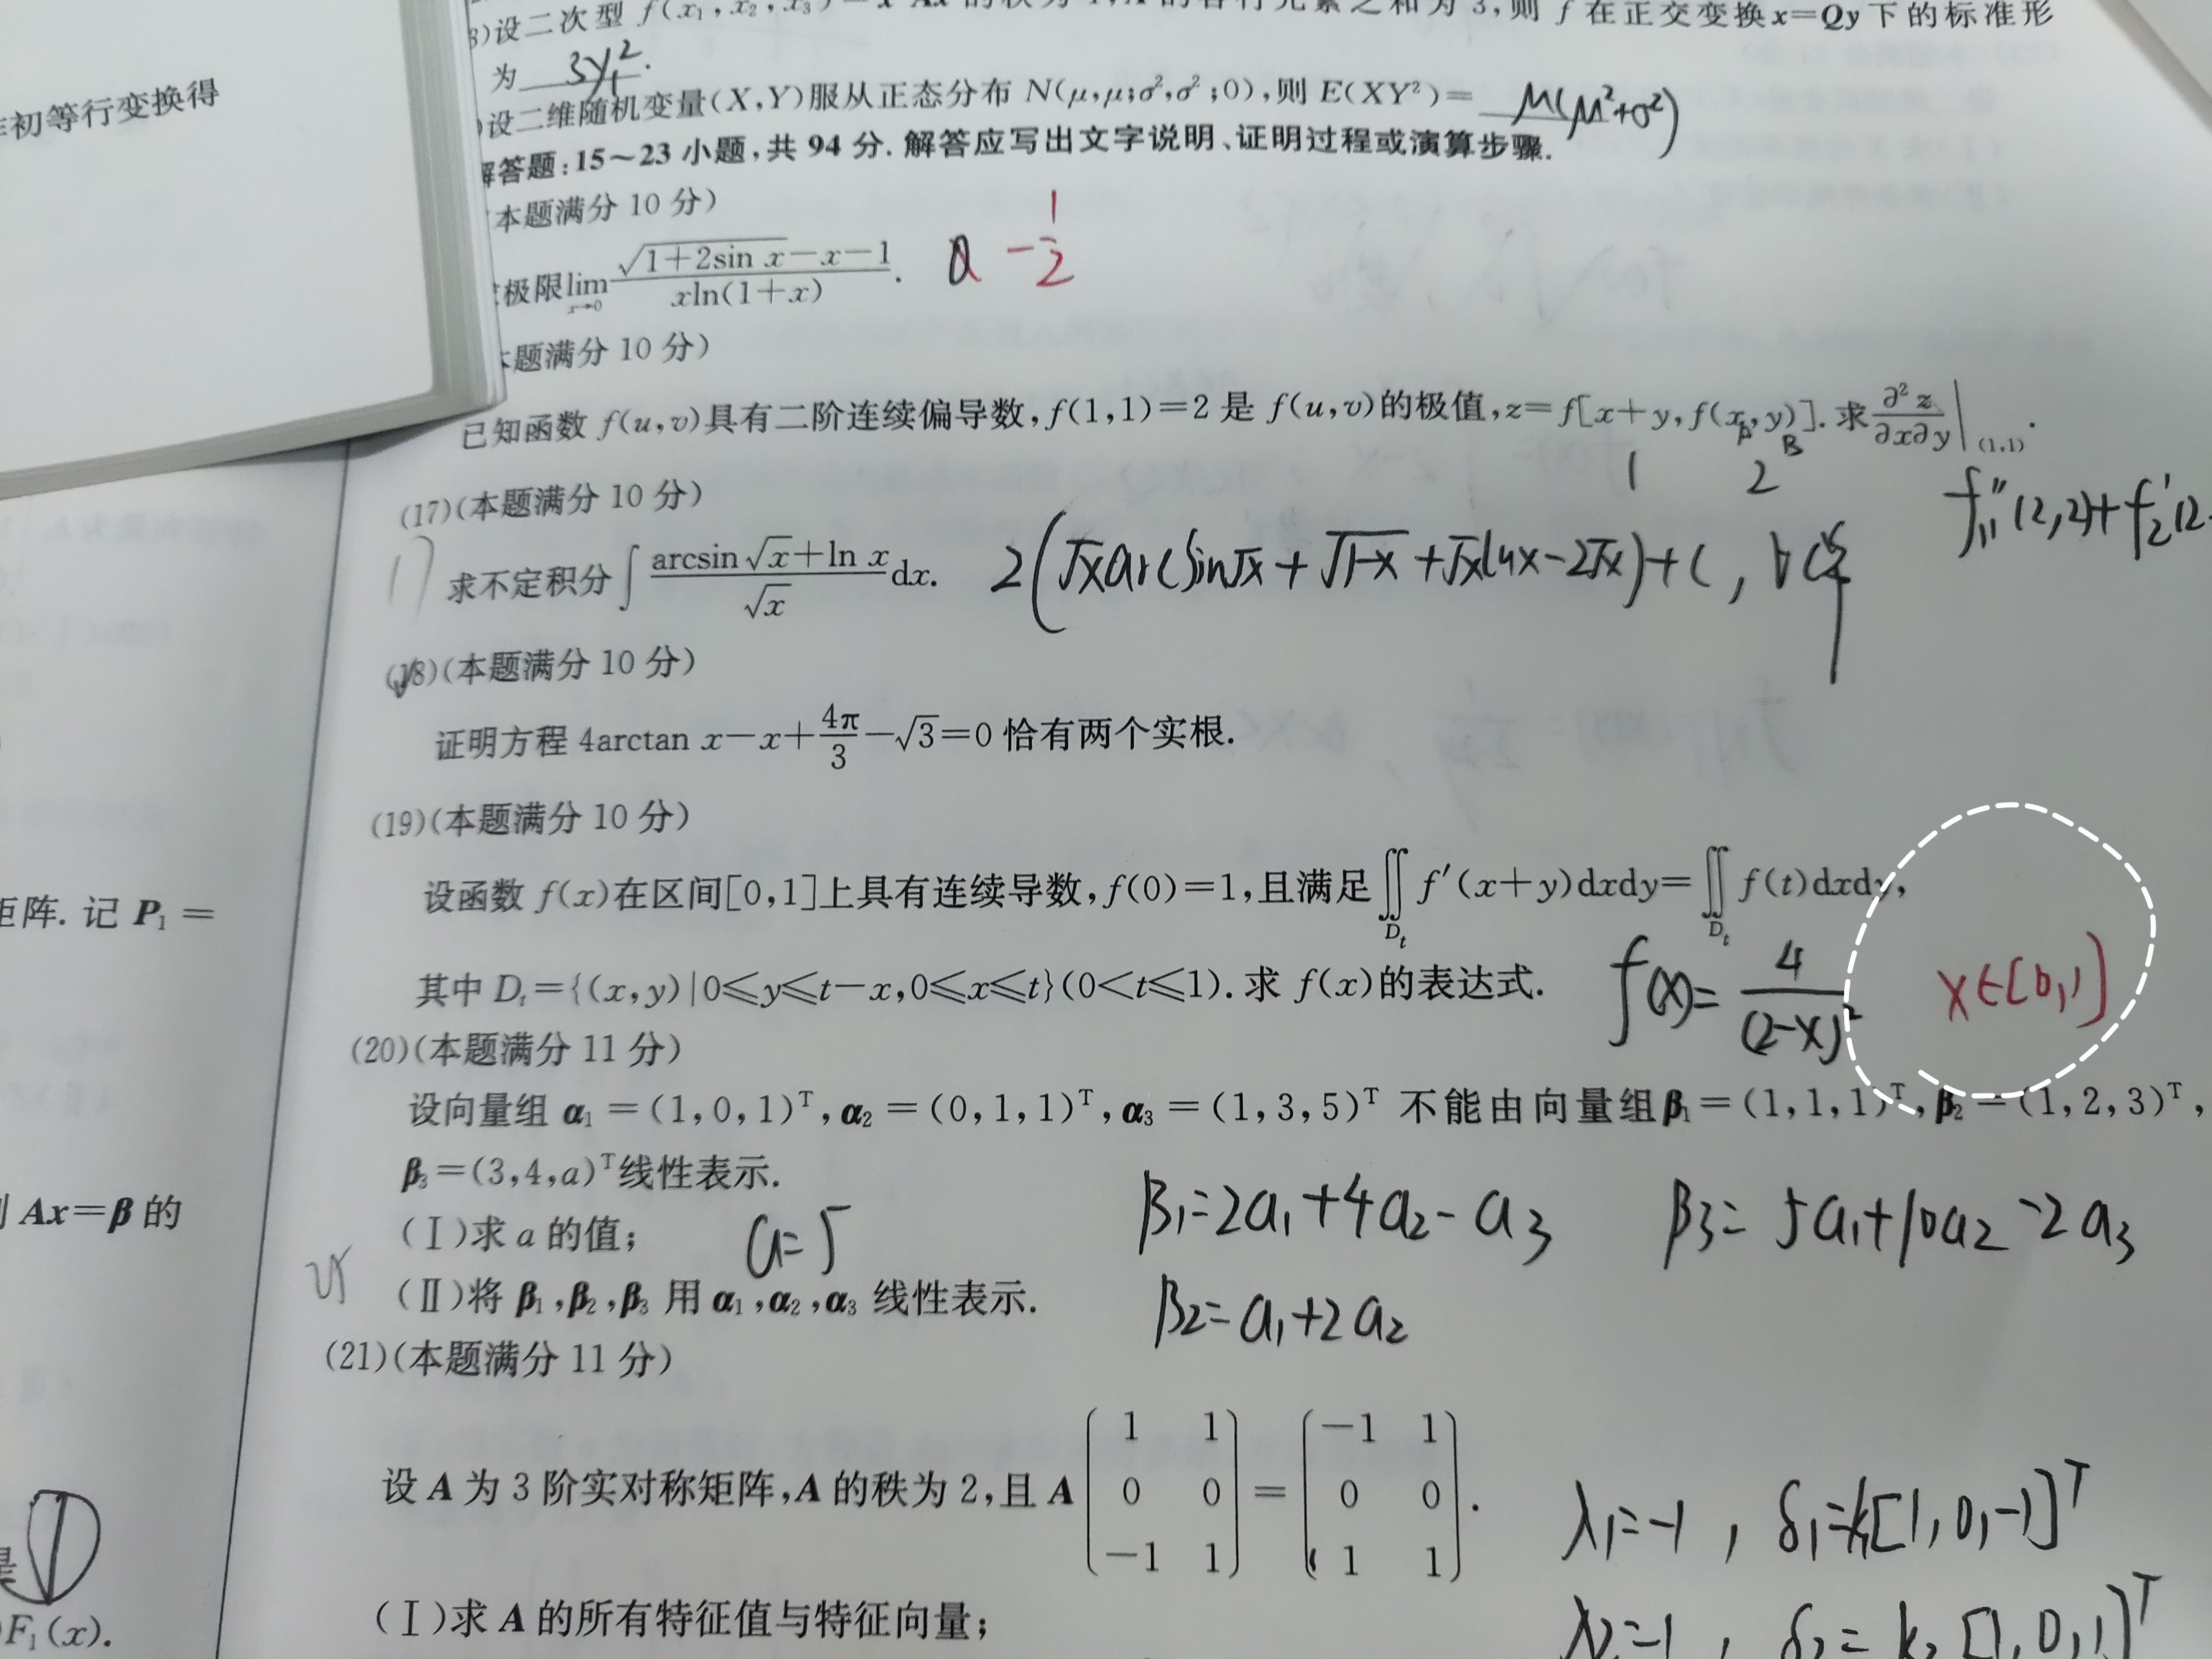 3)设二次型 f(x₁,x₂,x₃)= 的秩为1,A的各行元素之和为3,则 f 在正交变换 x=Qy 下的标准形
为 3y₁².
)设二维随机变量(X,Y)服从正态分布 N(μ,μ;σ²,σ²;0),则 E(XY²)= μ(μ²+σ²)
解答题:15~23 小题,共 94 分.解答应写出文字说明、证明过程或演算步骤.
本题满分 10 分)
极限 lim x→0 (√(1+2sin x)−x−1)/(xln(1+x)). −1/2
本题满分 10 分)
已知函数 f(u,v)具有二阶连续偏导数,f(1,1)=2 是 f(u,v)的极值,z=f[x+y,f(x,y)].求 ∂²z/∂x∂y|(1,1).
1 2
f₁₁″(2,2)+f₂′(2
(17)(本题满分 10 分)
17 求不定积分∫(arcsin √x+ln x)/√x dx. 2(√x arcsin√x+√(1-x)+√x lnx-2√x)+C,
(18)(本题满分 10 分)
证明方程 4arctan x−x+4π/3−√3=0 恰有两个实根.
(19)(本题满分 10 分)
设函数 f(x)在区间[0,1]上具有连续导数,f(0)=1,且满足∬_{D_t} f′(x+y)dxdy=∬_{D_t} f(t)dxdy,
其中 D_t={(x,y)|0≤y≤t−x,0≤x≤t}(0<t≤1).求 f(x)的表达式. f(x)=4/(2-x)² x∈[0,1]
(20)(本题满分 11 分)
设向量组 α₁=(1,0,1)ᵀ,α₂=(0,1,1)ᵀ,α₃=(1,3,5)ᵀ 不能由向量组β₁=(1,1,1)ᵀ,β₂=(1,2,3)ᵀ,
β₃=(3,4,a)ᵀ线性表示.
β₁=2a₁+4a₂-a₃ β3=5a₁+10a₂-2a₃
(Ⅰ)求 a 的值; a=5
(Ⅱ)将 β₁,β₂,β₃ 用 α₁,α₂,α₃ 线性表示. β2=a₁+2a₂
(21)(本题满分 11 分)
设 A 为 3 阶实对称矩阵,A 的秩为 2,且 A(1 1; 0 0; −1 1)=(−1 1; 0 0; 1 1).
λ₁=-1, δ₁=k₁[1,0,-1]ᵀ
(Ⅰ)求 A 的所有特征值与特征向量; λ2=1, δ2=k₂[1,0,1]ᵀ
初等行变换得
矩阵. 记 P₁=
Ax=β 的
F₁(x).